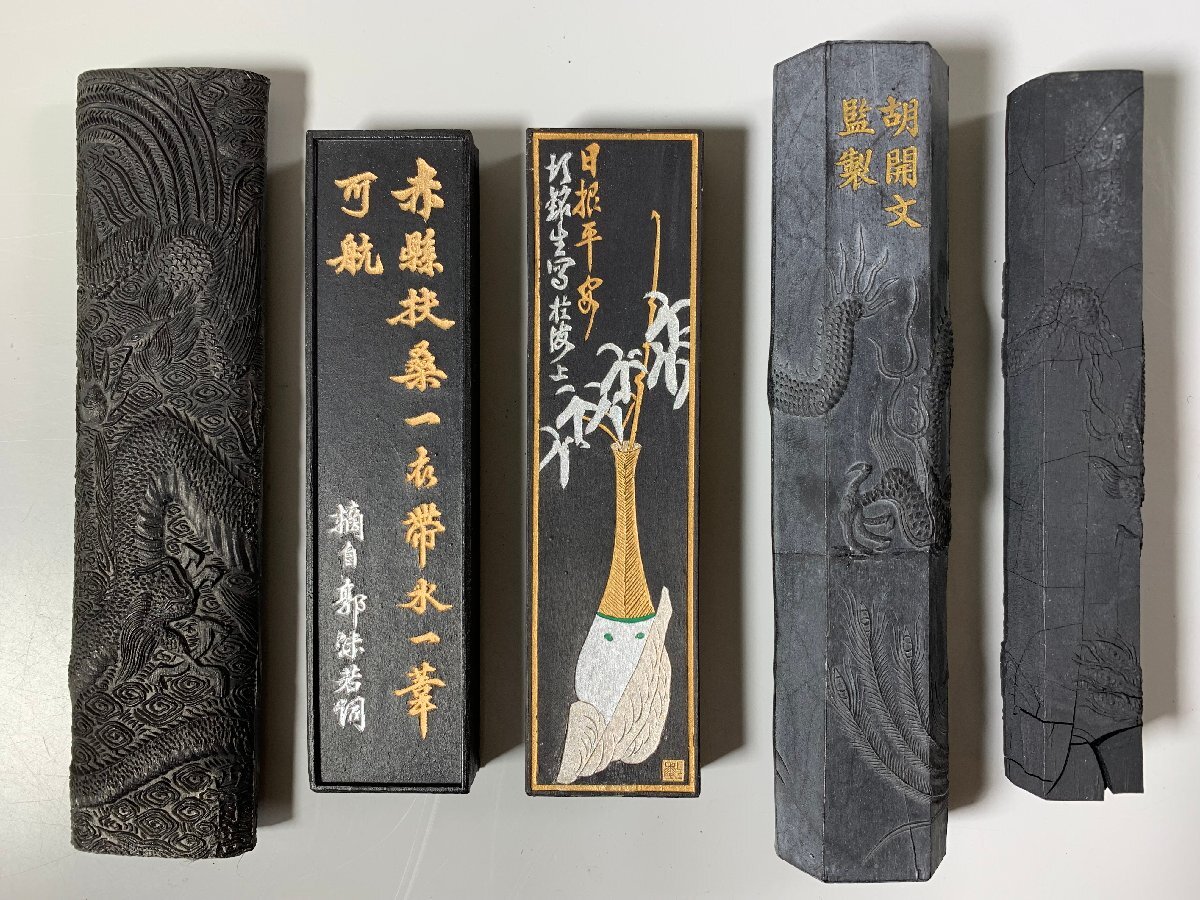 赤縣扶桑一衣帶水一葦
可航
摘自郭沫若詞
日报平安
銘生寫於海上
胡開文
監製